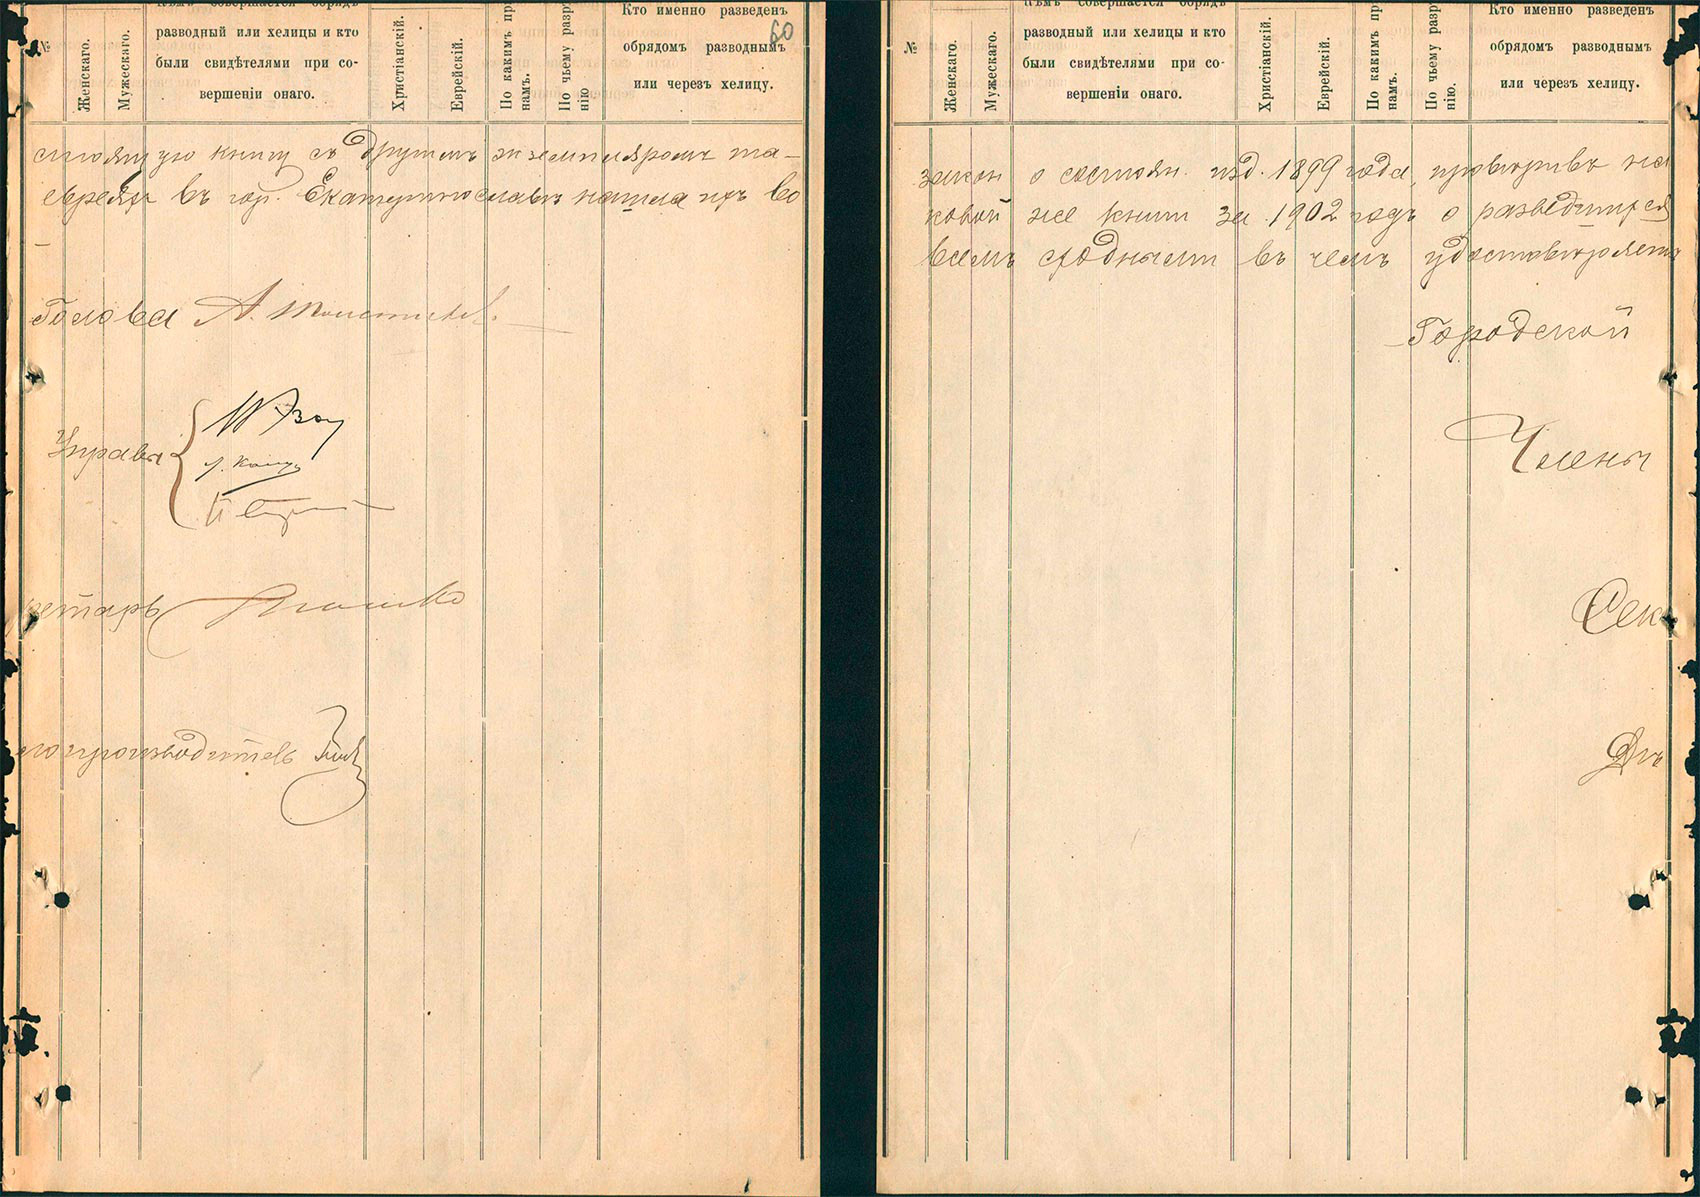 №
Женскаго.
Мужескаго.
Кѣмъ совершается обрядъ
разводный или хелицы и кто
были свидѣтелями при со-
вершеніи онаго.
Христіанскій.
Еврейскій.
По какимъ при
намъ.
По чьему разр
нію
Кто именно разведенъ
обрядомъ разводнымъ
или черезъ хелицу.
60
стоящую книгу съ другимъ экземпляромъ та-
евреяхъ въ гор. Екатеринославѣ нашла ихъ во
Голова А. Толстиков
Управы
ретарь
лопроизводитель
№
Женскаго.
Мужескаго.
Кѣмъ совершается обрядъ
разводный или хелицы и кто
были свидѣтелями при со-
вершеніи онаго.
Христіанскій.
Еврейскій.
По какимъ пр
намъ.
По чьему разр
нію.
Кто именно разведенъ
обрядомъ разводнымъ
или черезъ хелицу.
закон о состоян. изд. 1899 года, провѣривъ на
ковой же книги за 1902 годъ о разведшихся
всемъ сходными въ чемъ удостовѣряетъ
Городской
Члены
Сек
Дѣ